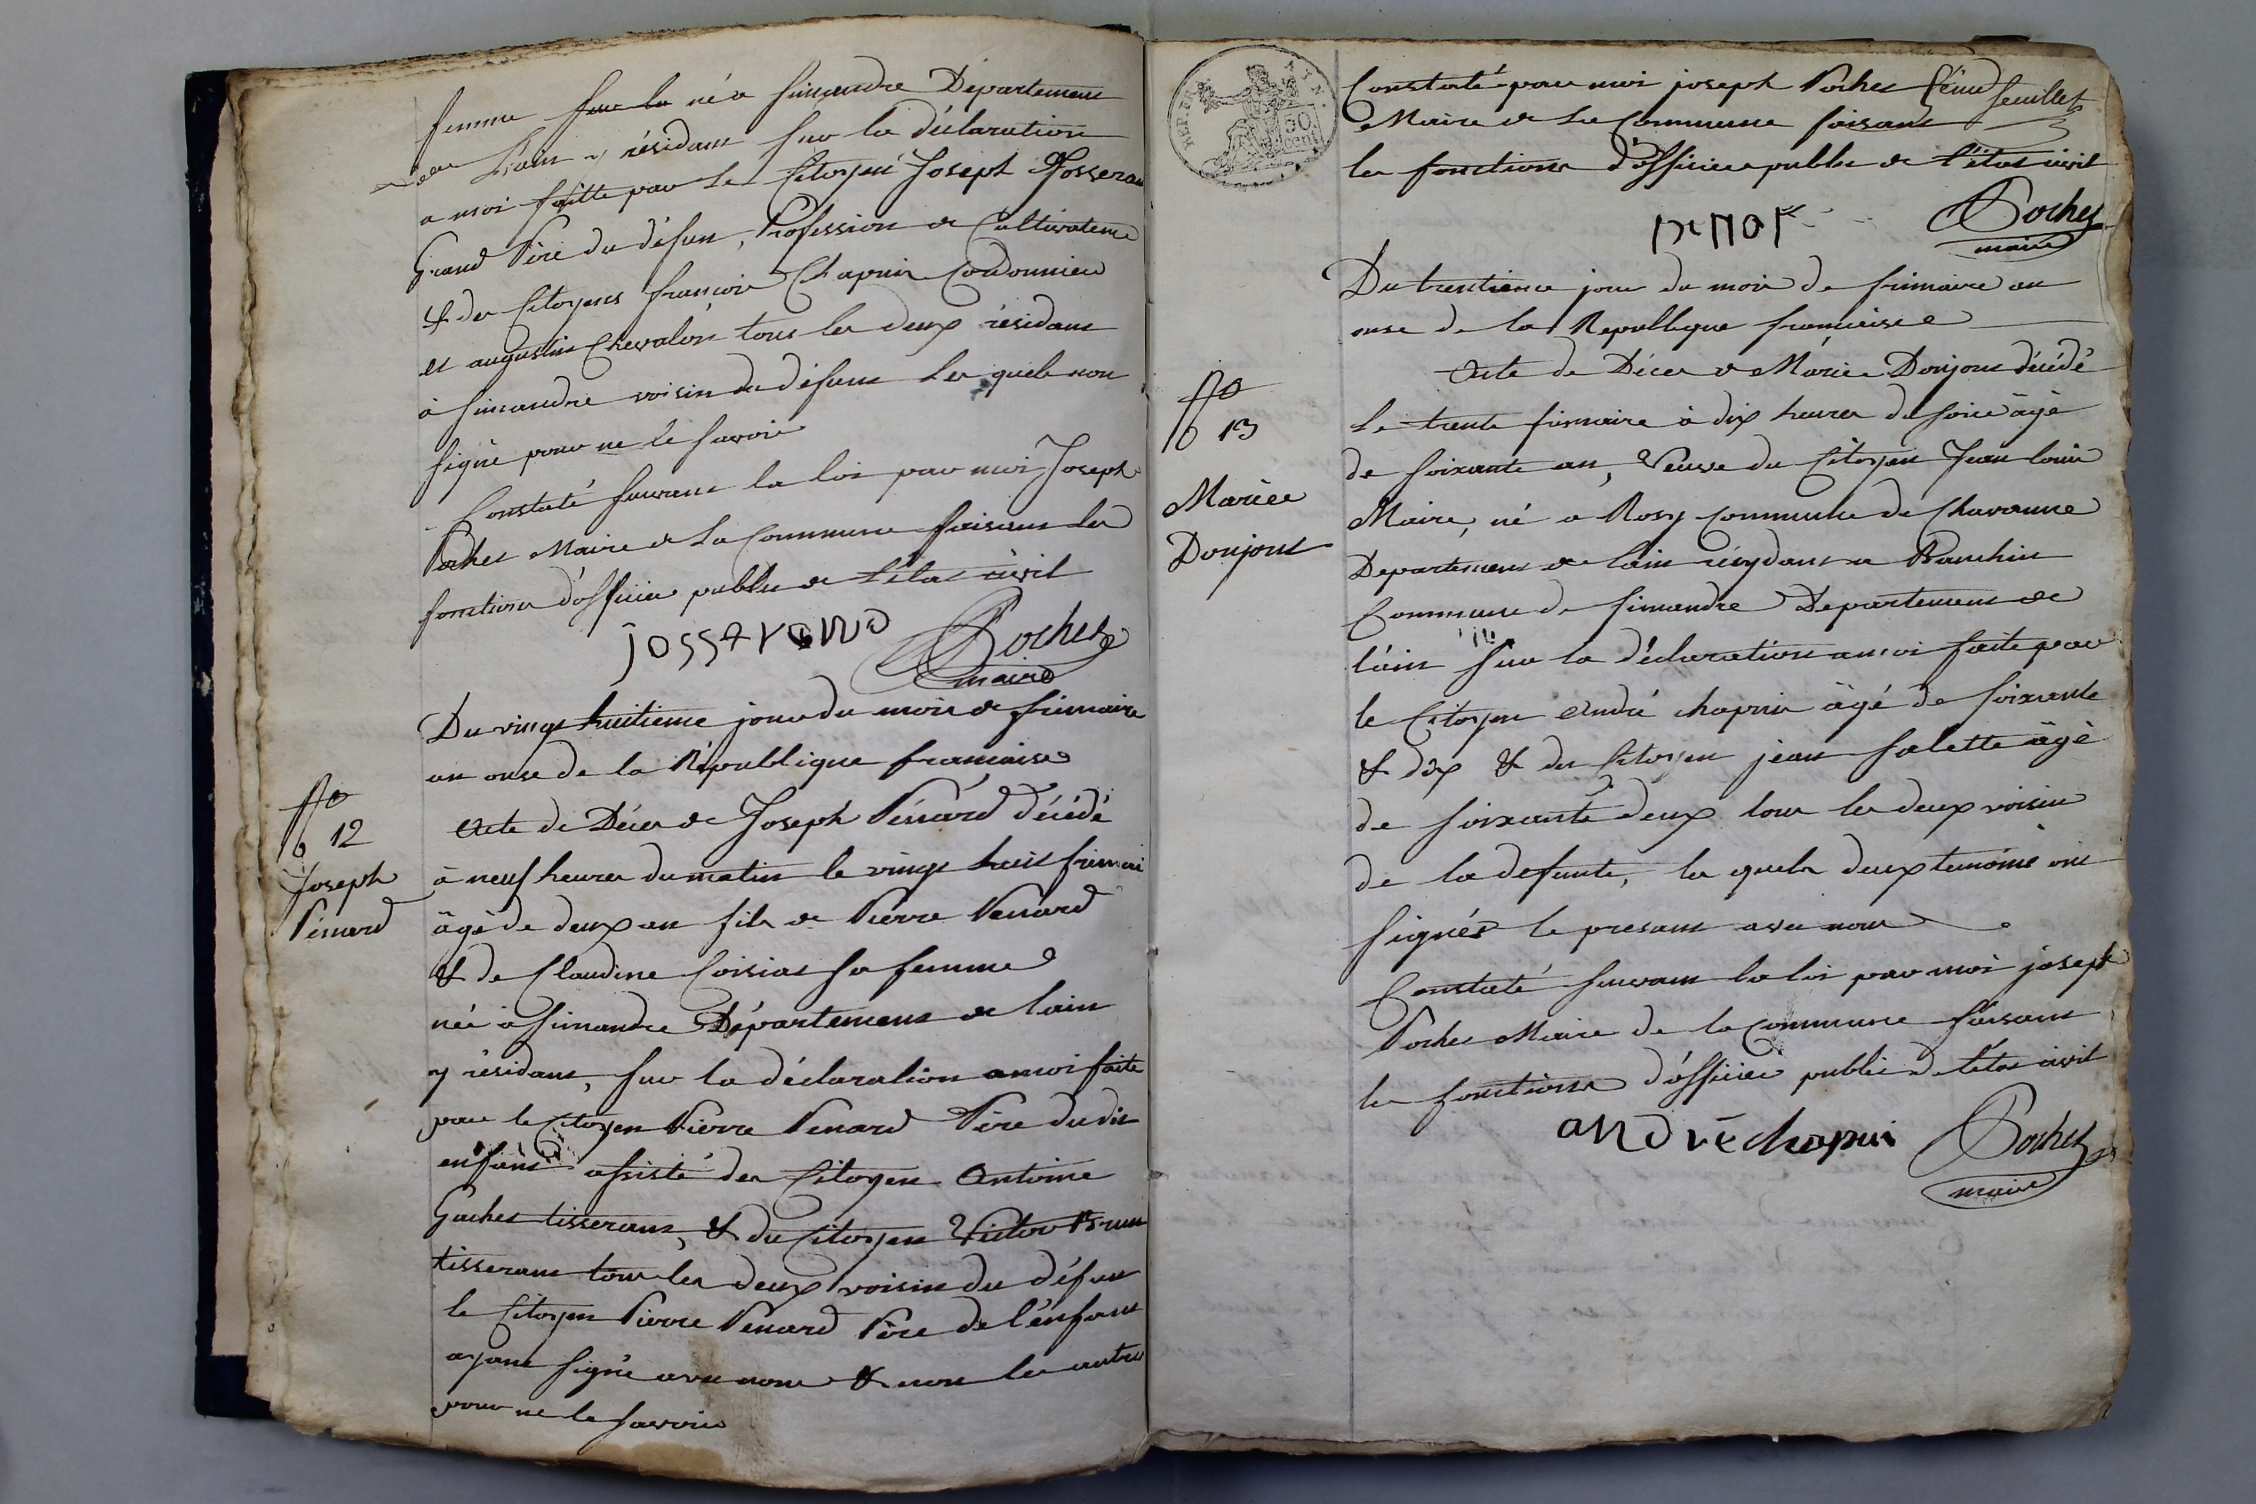 femme née a simandre Département
de L'ain y résidant sur la déclaration
a moi faitte par le Citoyen Joseph Josseran
Grand Père du défun, Profession de Cultivateur
& des Citoyens françois Chapuis Cordonnier
et augustin Chevalon tous les deux résidant
à simandre voisin du défunt Les quels non
signé pour ne le savoir
Constaté suivant la loi par moi Joseph
Pochet Maire de La Commune faisant les
fonctions d'officier public de L'état civil
jossErAND Pochet
maire
Du vingt huitieme jour du mois de frimaire
an onse de la République francaise
No
12
Joseph
Pénard
Acte de Décès de Joseph Pénard décédé
à neuf heures du matin le vingt huit frimai
âgé de deux an fils de Pierre Penard
& de Claudine Coisiat sa femme
née à simandre Département de lain
y résidant, sur la déclaration a moi faite
par le Citoyen Pierre Penard Père du dit
enfant assisté des Citoyen Antoine
Gachet tisserant, & du Citoyen Victor Brun
tisserant tous les deux voisin du défun
le Citoyen Pierre Penard Père de l'enfant
ayant signé avec nous & non les autres
pour ne le savoir
REP. FRA.
50
cent
feuillet
Constaté par moi joseph Pochet
Maire de La Commune faisant
les fonctions d'officier public de l'état civil
PENOR Pochet
maire
Du trentieme jour du mois de frimaire an
onse de la Republique francaise
No
13
Mariee
Donjont
Acte de Décès de Mariee Donjont décédé
le trente frimaire à dix heures du soire âgé
de soixante an, Veuve du Citoyen Jean louis
Maire, né a Rosy Commune de Chavanne
Departement de lain résydant a Banchin
Commune de simandre Departement de
láin sur la déclaration a moi faite par
le Citoyen André chapuis âgé de soixante
& dix & du Citoyen jean salette âgé
de soixante deux tous les deux voisin
de la defunte, les quels deux temoins ont
signés le present avec nous
Constaté suivant la loi par moi joseph
Pochet Maire de la Commune faisant
les fonctions d'officier public de l'état civil
ANDré chapui Pochet
maire